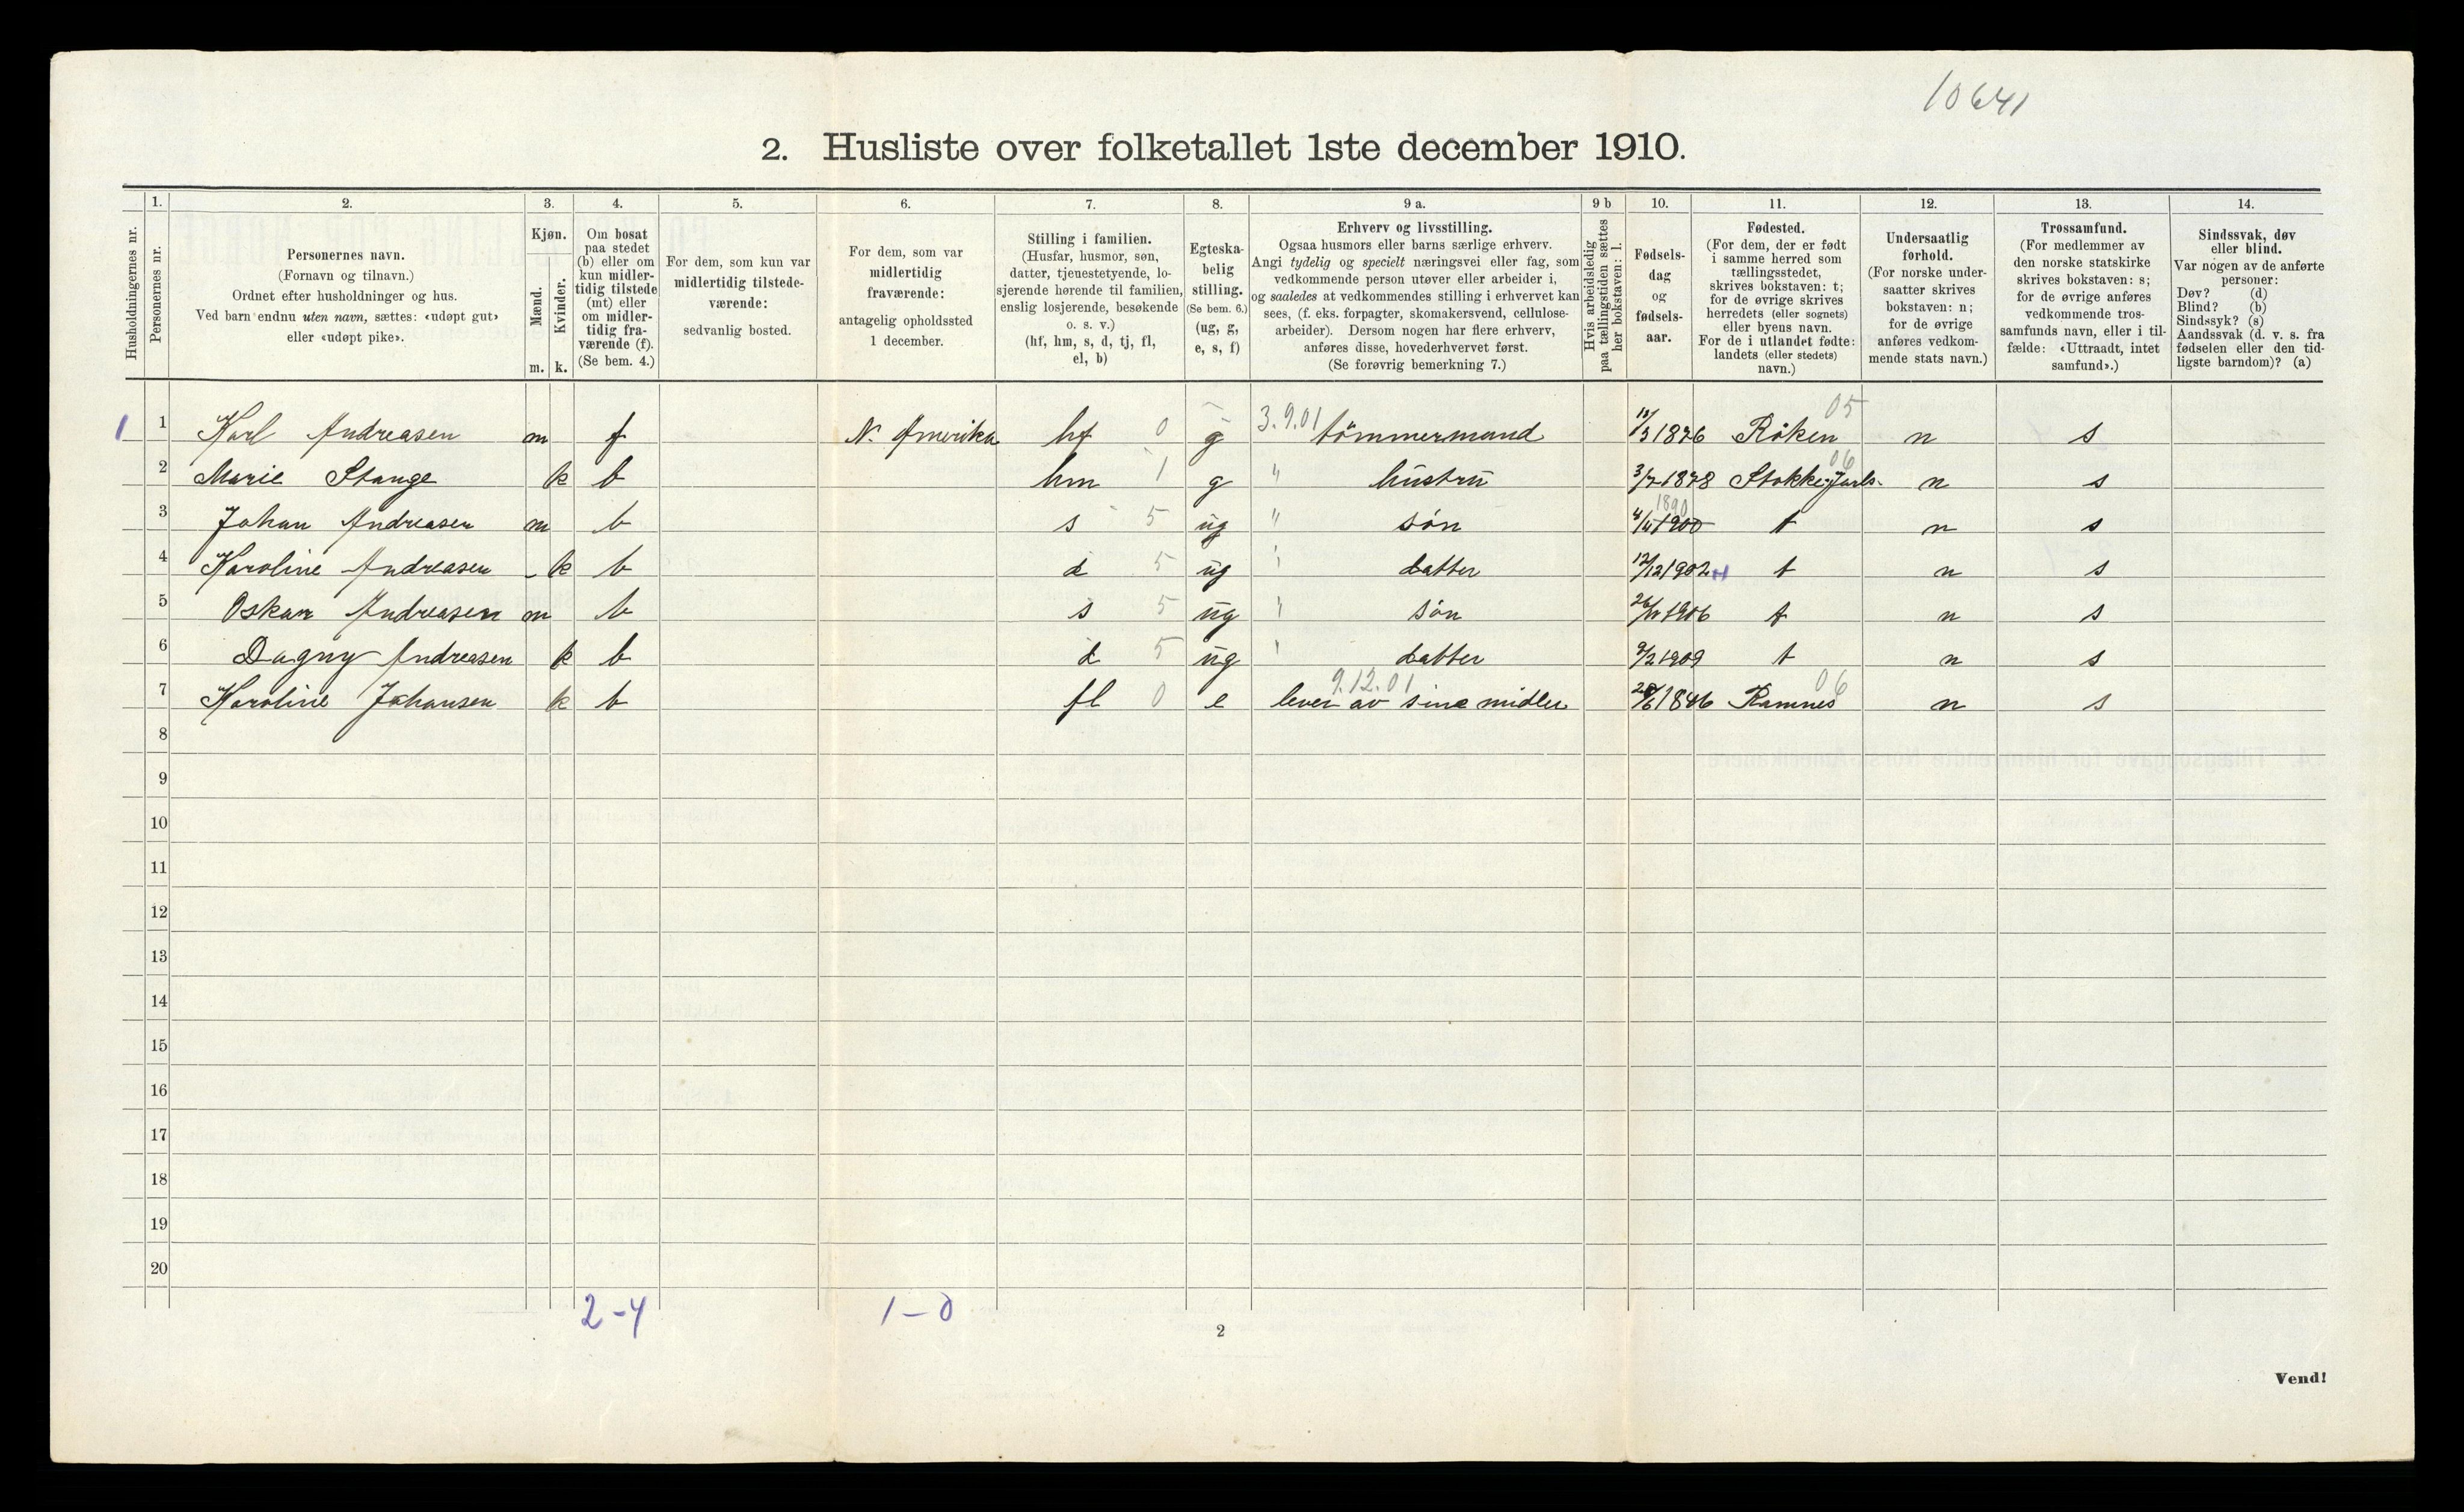 10641
2. Husliste over folketallet 1ste december 1910.
1. 2. 3. 4. 5. 6. 7. 8. 9 a. 9 b 10. 11. 12. 13. 14.
Husholdningernes nr.
Personernes nr.
Personernes navn.
(Fornavn og tilnavn.)
Ordnet efter husholdninger og hus.
Ved barn endnu uten navn, sættes: «udøpt gut»
eller «udøpt pike».
Kjøn.
Mænd.
Kvinder.
m. k.
Om bosat
paa stedet
(b) eller om
kun midler-
tidig tilstede
(mt) eller
om midler-
tidig fra-
værende (f).
(Se bem. 4.)
For dem, som kun var
midlertidig tilstede-
værende:
sedvanlig bosted.
For dem, som var
midlertidig
fraværende:
antagelig opholdssted
1 december.
Stilling i familien.
(Husfar, husmor, søn,
datter, tjenestetyende, lo-
sjerende hørende til familien,
enslig losjerende, besøkende
o. s. v.)
(hf, hm, s, d, tj, fl,
el, b)
Egteska-
belig
stilling.
(Se bem. 6.)
(ug, g,
e, s, f)
Erhverv og livsstilling.
Ogsaa husmors eller barns særlige erhverv.
Angi tydelig og specielt næringsvei eller fag, som
vedkommende person utøver eller arbeider i,
og saaledes at vedkommendes stilling i erhvervet kan
sees, (f. eks. forpagter, skomakersvend, cellulose-
arbeider). Dersom nogen har flere erhverv,
anføres disse, hovederhvervet først.
(Se forøvrig bemerkning 7.)
Hvis arbeidsledig
paa tællingstiden sættes
her bokstaven: l.
Fødsels-
dag
og
fødsels-
aar.
Fødested.
(For dem, der er født
i samme herred som
tællingsstedet,
skrives bokstaven: t;
for de øvrige skrives
herredets (eller sognets)
eller byens navn.
For de i utlandet fødte:
landets (eller stedets)
navn.)
Undersaatlig
forhold.
(For norske under-
saatter skrives
bokstaven: n;
for de øvrige
anføres vedkom-
mende stats navn.)
Trossamfund.
(For medlemmer av
den norske statskirke
skrives bokstaven: s;
for de øvrige anføres
vedkommende tros-
samfunds navn, eller i til-
fælde: «Uttraadt, intet
samfund».)
Sindssvak, døv
eller blind.
Var nogen av de anførte
personer:
Døv? (d)
Blind? (b)
Sindssyk? (s)
Aandssvak (d. v. s. fra
fødselen eller den tid-
ligste barndom)? (a)
1 1 Karl Andreasen m f N. Amerika hf 0 g 3.9.01 tömmermand /3 1876 Röken 05 n s
2 Marie Stange k b hm 1 g " hustru 3/7 1878 Stokke Jarls. 06 n s
3 Johan Andreasen m b s 5 ug " sön 4/11 1900 1890 t n s
4 Karoline Andreasen - k b d 5 ug " datter 12/12 1902 t n s
5 Oskar Andreasen m b s 5 ug " sön 26/11 1906 t n s
6 Dagny Andreasen k b d 5 ug " datter 9/2 1909 t n s
7 Karoline Johansen k b fl 0 e lever av sine midler 9.12.01 /6 1846 Ramnes 06 n s
8
9
10
11
12
13
14
15
16
17
18
19
20
2-4 1-0
2
Vend!